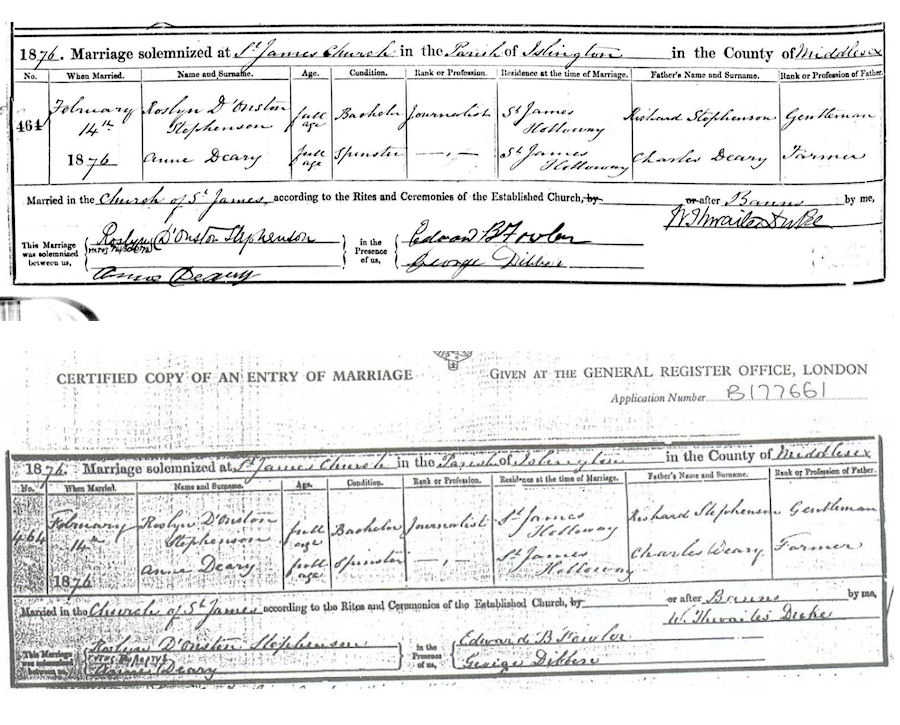 1876. Marriage solemnized at St. James Church in the Parish of Islington in the County of Middlesex
No. When Married. Name and Surname. Age. Condition. Rank or Profession. Residence at the time of Marriage. Father's Name and Surname. Rank or Profession of Father.
464 February 14th 1876
Roslyn D'Onston Stephenson full age Bachelor Journalist St James Holloway Richard Stephenson Gentleman
Anne Deary full age Spinster —,— St James Holloway Charles Deary Farmer
Married in the Church of St. James according to the Rites and Ceremonies of the Established Church, by or after Banns by me,
W Thwaites Duke
This Marriage was solemnized between us, Roslyn D'Onston Stephenson
Anne Deary
in the Presence of us, Edward B Fowler
George Dibben
CERTIFIED COPY OF AN ENTRY OF MARRIAGE
GIVEN AT THE GENERAL REGISTER OFFICE, LONDON
Application Number B177661
1876. Marriage solemnized at St. James Church in the Parish of Islington in the County of Middlesex
No. When Married. Name and Surname. Age. Condition. Rank or Profession. Residence at the time of Marriage. Father's Name and Surname. Rank or Profession of Father.
464 February 14th 1876
Roslyn D'Onston Stephenson full age Bachelor Journalist St James Holloway Richard Stephenson Gentleman
Anne Deary full age Spinster —,— St James Holloway Charles Deary Farmer
Married in the Church of St. James according to the Rites and Ceremonies of the Established Church, by or after Banns by me,
W. Thwaites Duke
This Marriage was solemnized Roslyn D'Onston Stephenson
Anne Deary
in the Presence of us, Edward B Fowler
George Dibben